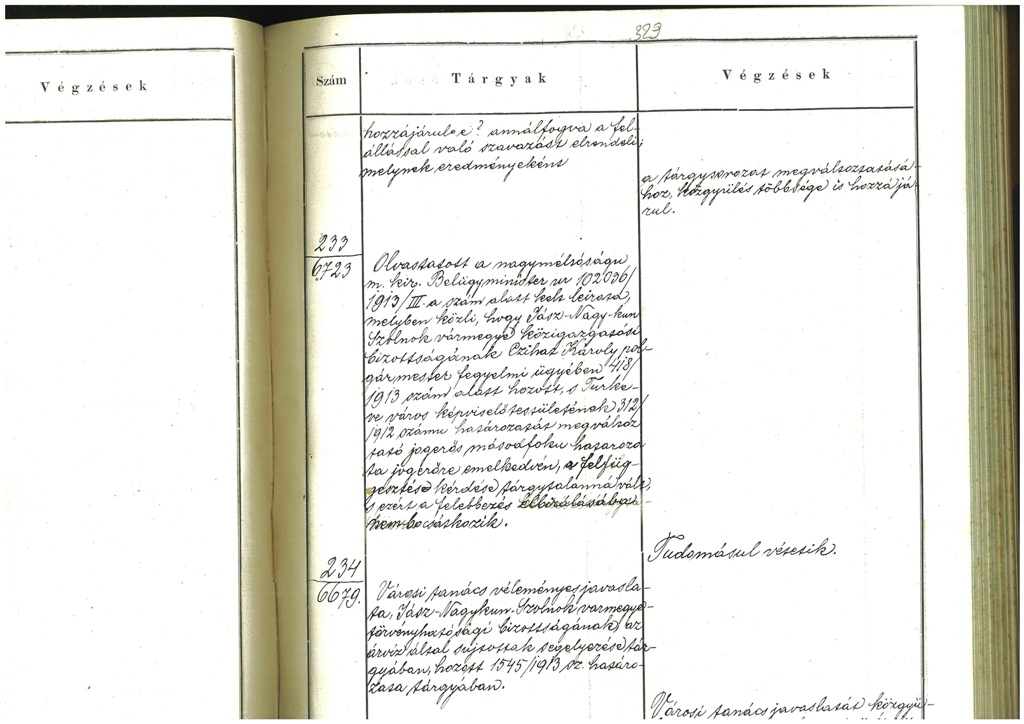 329
Végzések
Szám
Tárgyak
Végzések
hozzájárul-e? annálfogva a fel-
állással való szavazást elrendeli;
melynek eredményeként
a tárgysorozat megváltoztatásá-
hoz, közgyülés többsége is hozzájá-
rul.
233
6723
Olvastatott a nagyméltóságu
m. kir. Belügyminister ur 102036/
1913/III. a szám alatt kelt leirata,
melyben közli, hogy Jász-Nagy-kun
Szolnok vármegye közigazgatási
bizottságának Czihat Károly pol-
gármester fegyelmi ügyében 418/
1913 szám alatt hozott, s Turke-
ve város képviselőtestületének 312/
1912 számu határozatát megváltoz
tató jogerős másodfoku hataroza
ta jogerőre emelkedvén, a felfüg-
gesztés kérdése tárgytalanná vált,
s ezért a felebbezés elbirálásába
nem bocsátkozik.
Tudomásul vétetik.
234
6679.
Városi tanács véleményes javasla-
ta, Jász-Nagykun-Szolnok varmegye
törvényhatósági bizottságának, az
árviz által sujtottak segelyezése tár-
gyában, hozott 1545/1913 sz. határo-
zata tárgyában.
Városi tanács javaslatát közgyü-